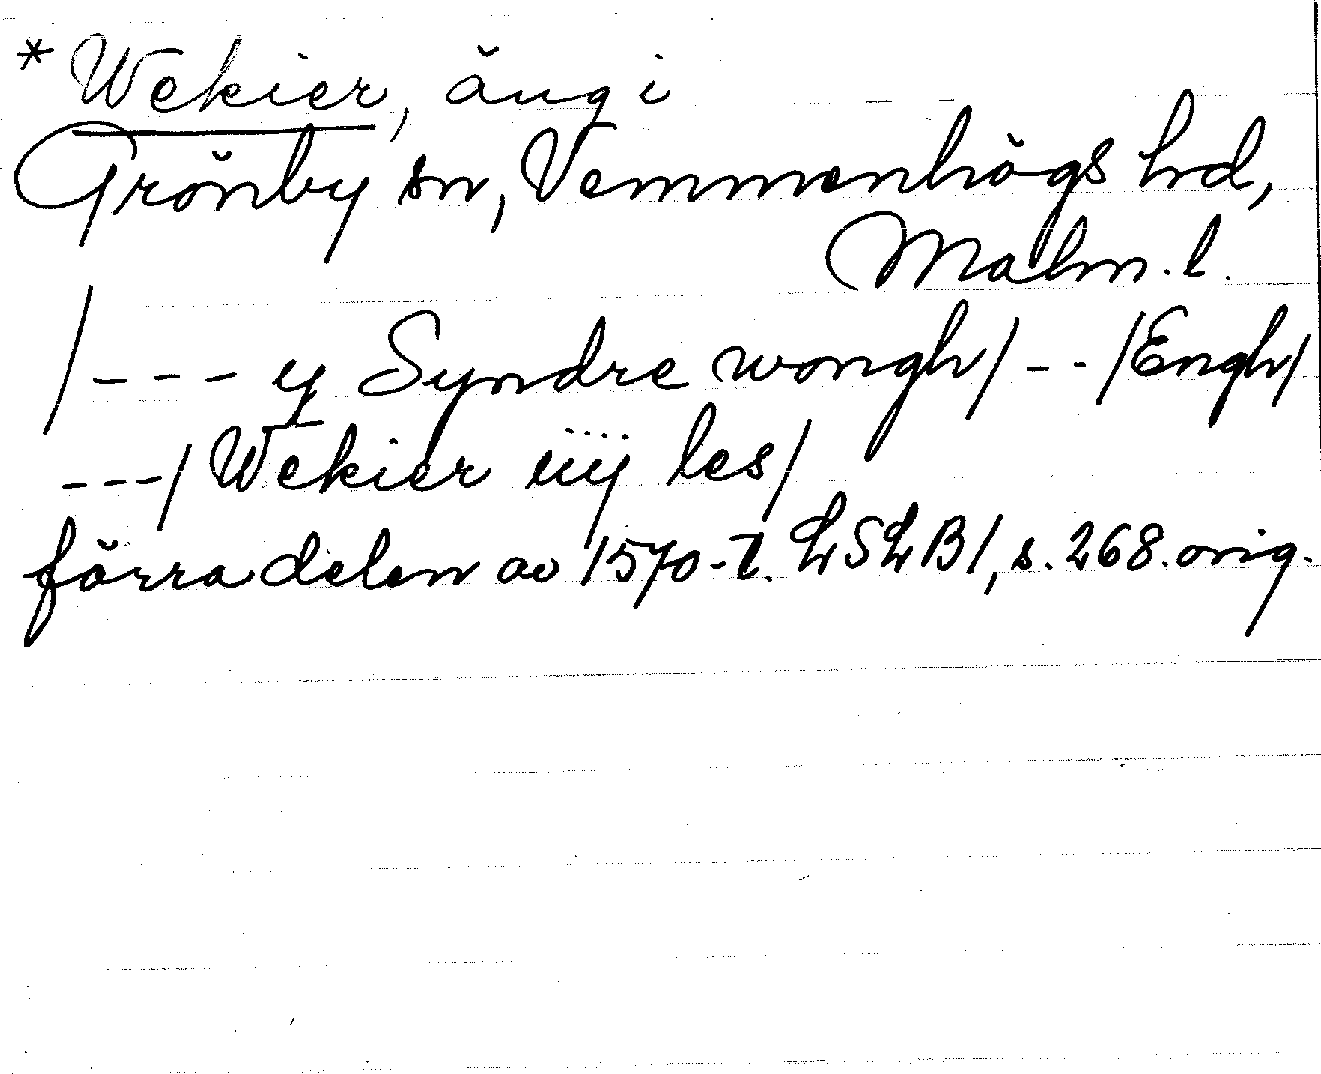 * Wekier, äng i
Grönby sn, Vemmenhögs hd,
Malm. l.
/--- y Syndre wongh/--/Engh/
---/Wekier iiij les/
förra delen av 1570-t. LSLB1, s. 268. orig.